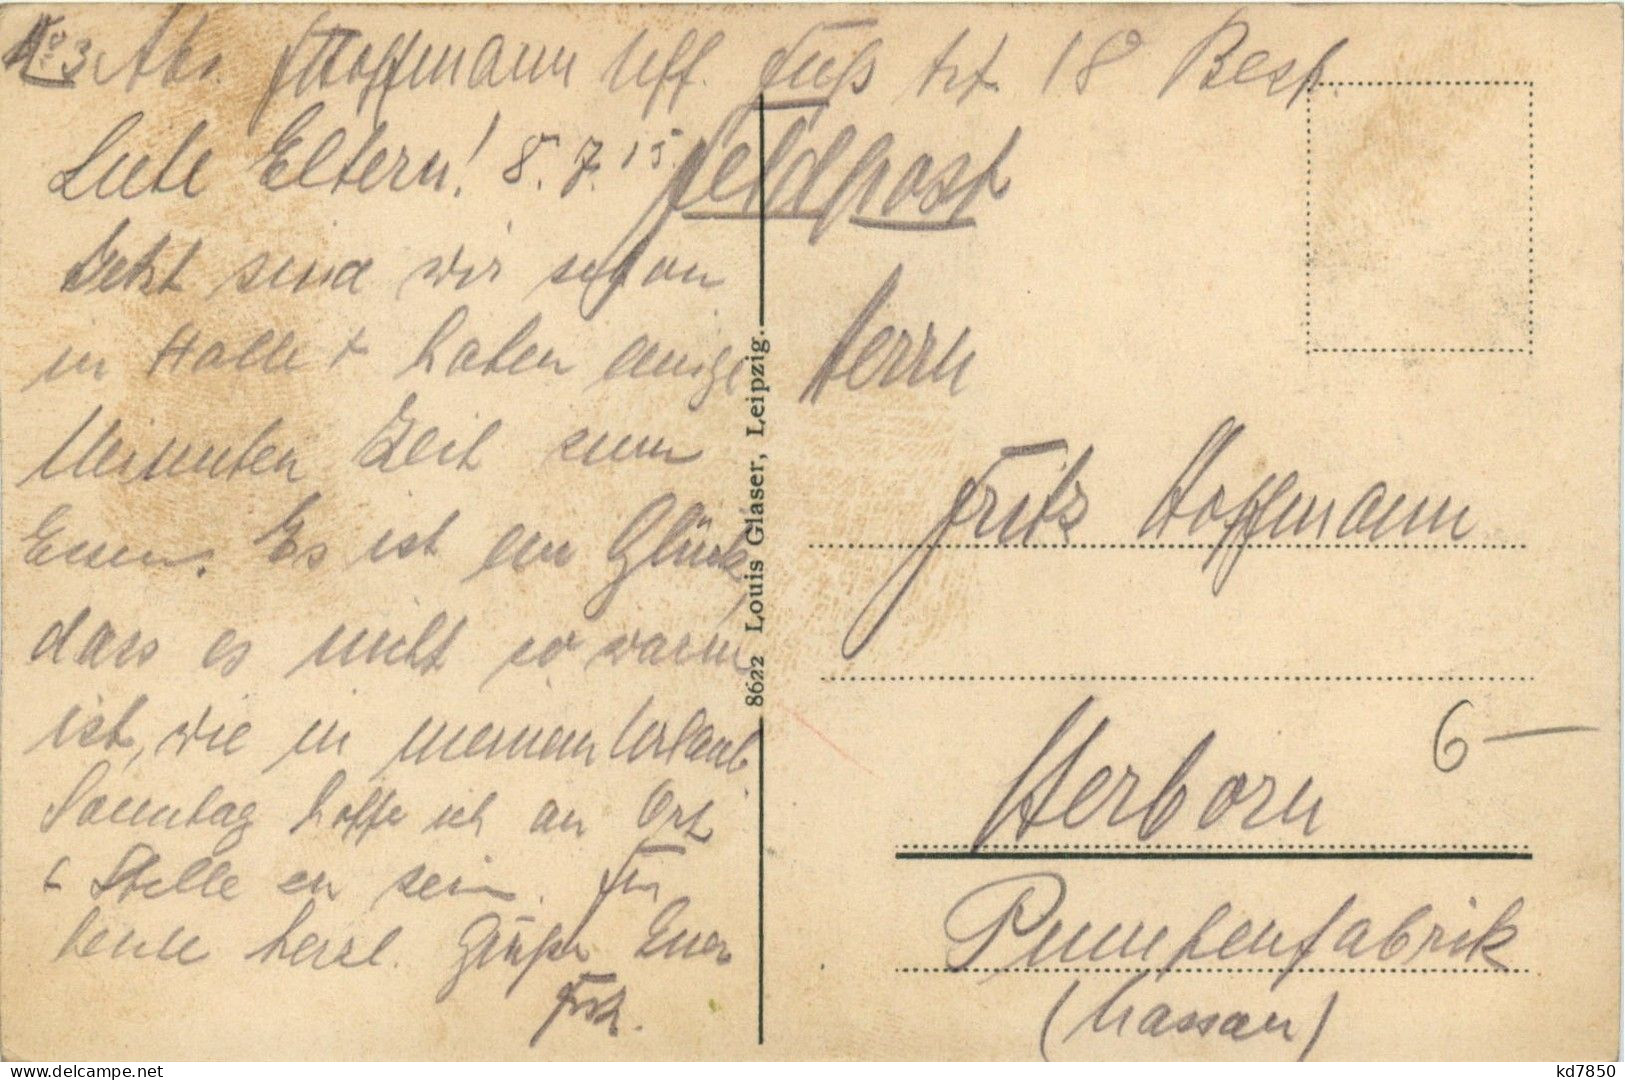 No 3 Abs. F Hoffmann Uff. Fuß Art 18 Besp.
Liebe Eltern! 8.7.15.
Jetzt sind wir schon
in Halle + haben einige
Minuten Zeit zum
Essen. Es ist ein Glück
dass es nicht so warm
ist, wie in meinem Urlaub
Sonntag hoffe ich an Ort
& Stelle zu sein. Für
heute herzl. Grüße Euer
Fritz.
8622 Louis Glaser, Leipzig.
Feldpost
Herrn
Fritz Hoffmann
Herborn
6-
Pumpenfabrik
(Nassau)
kd7850